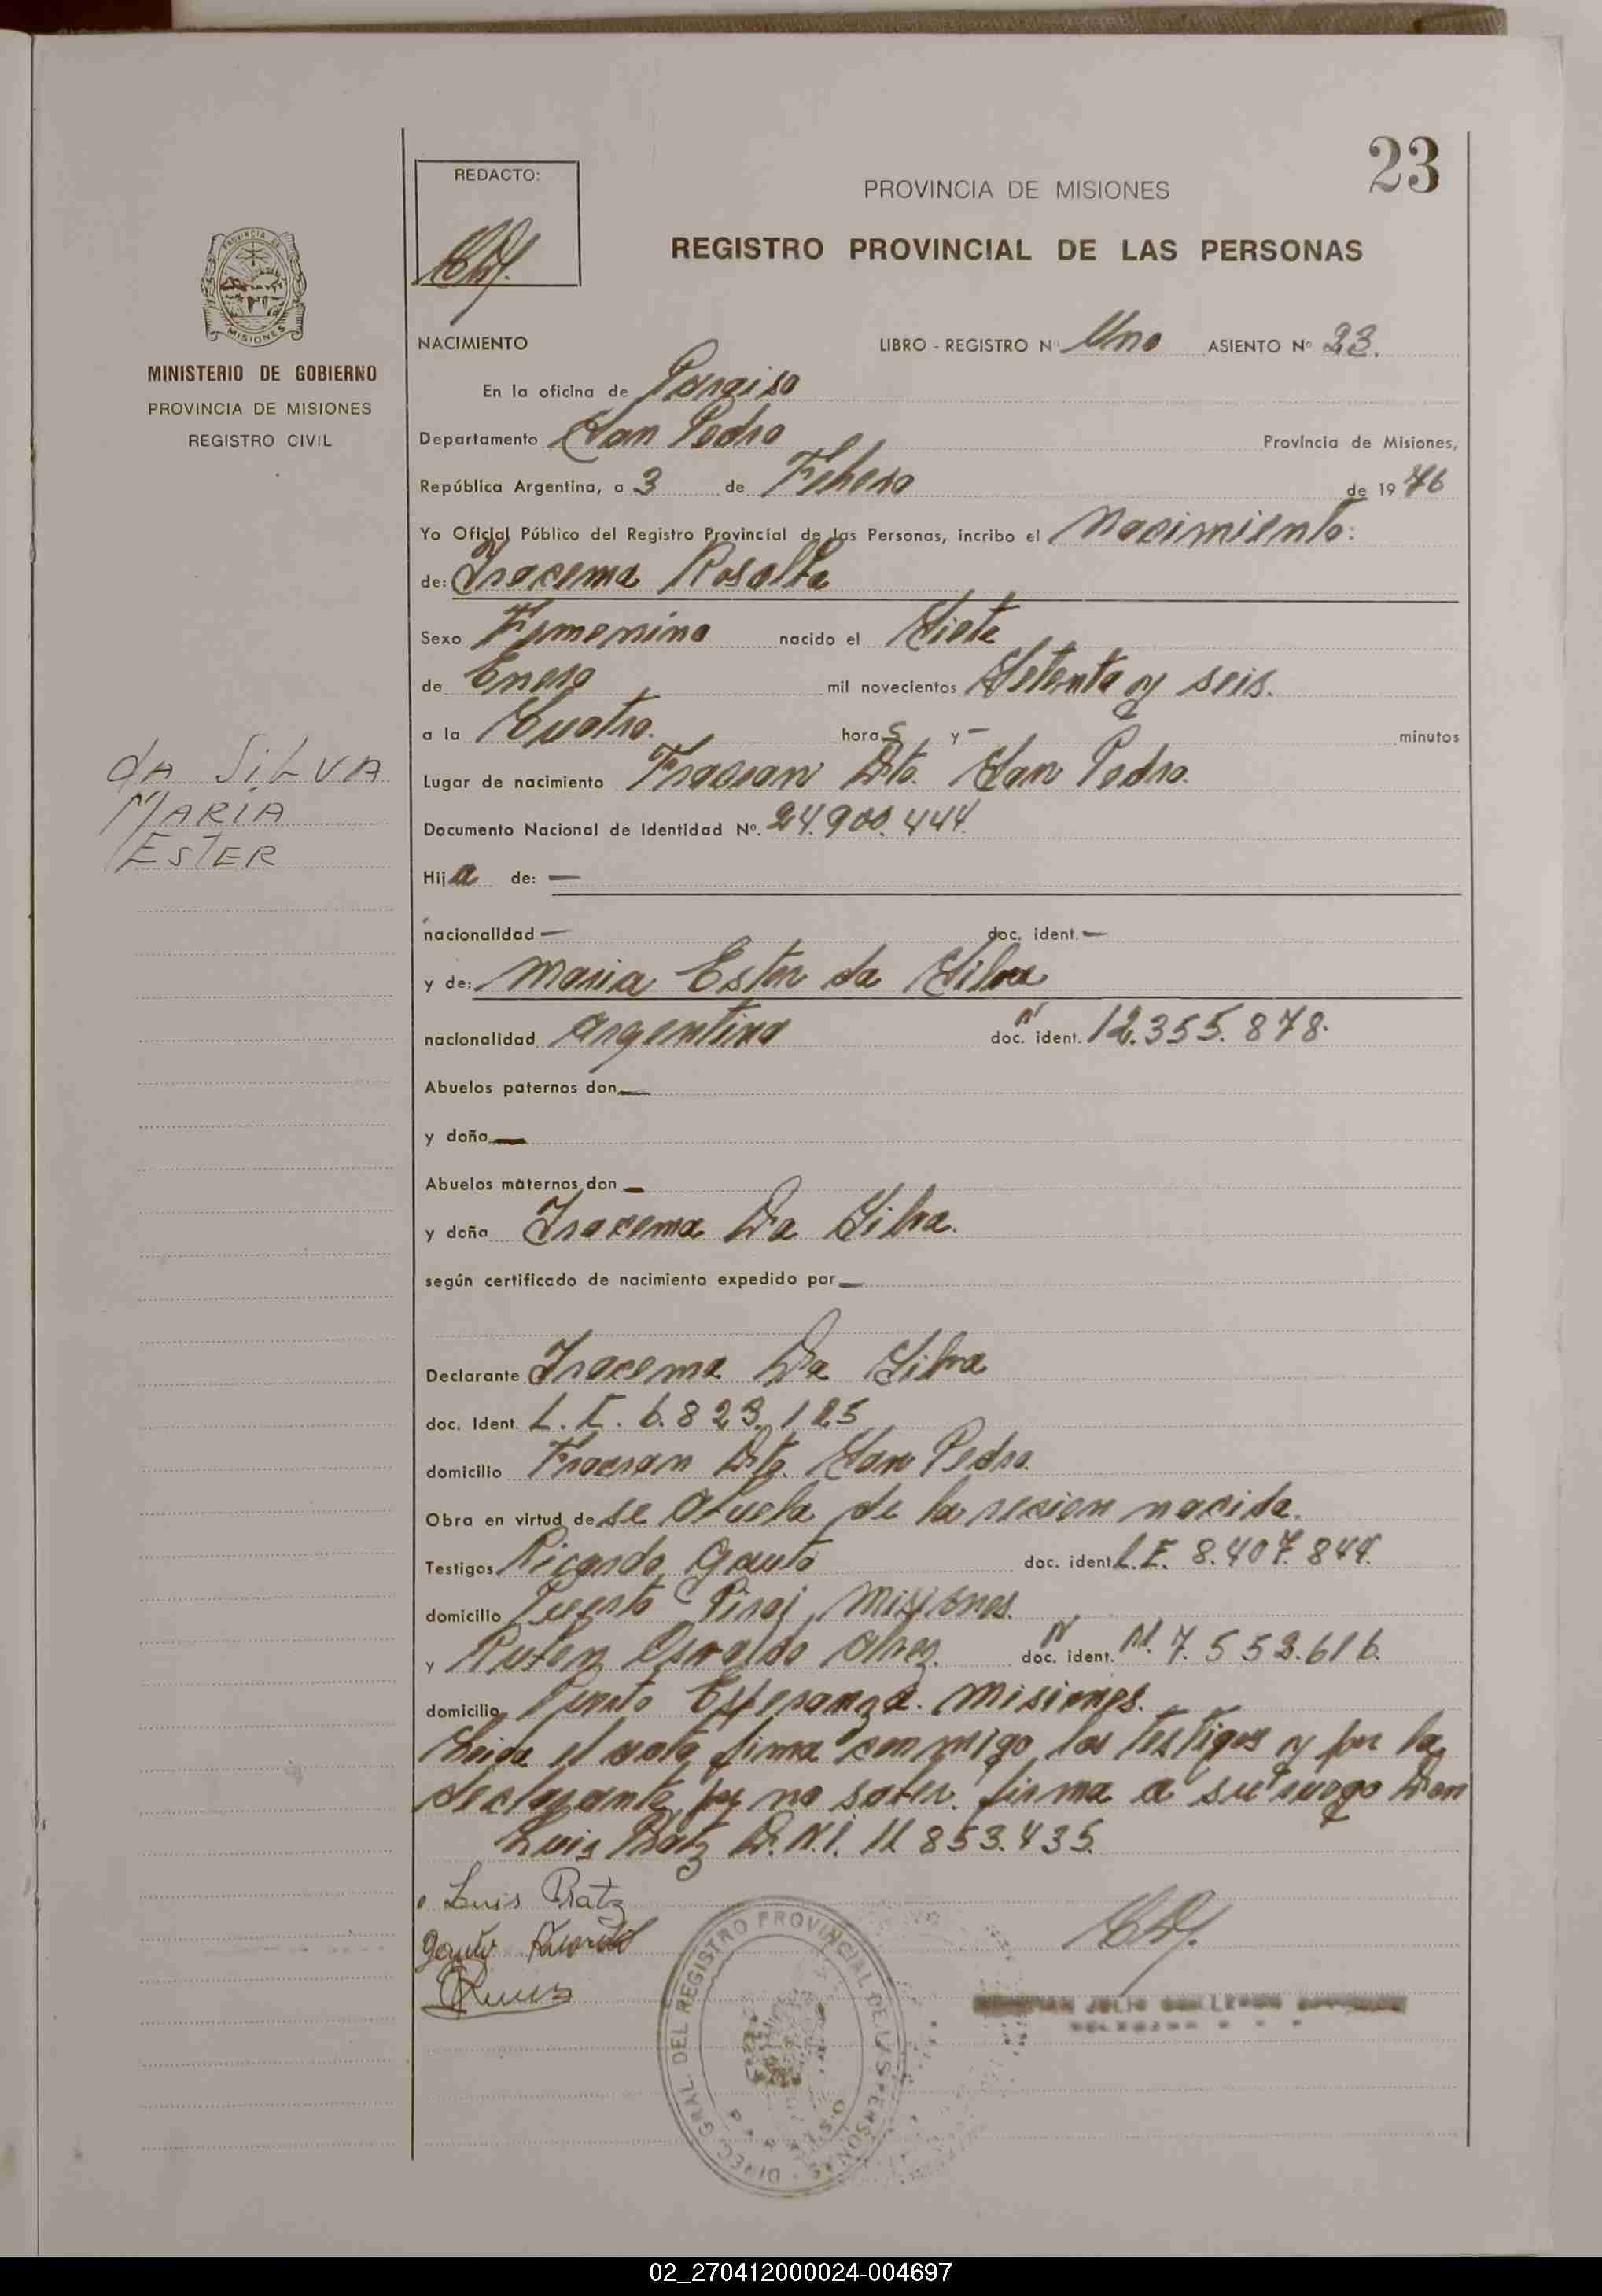 23
REDACTO:
PROVINCIA DE MISIONES
REGISTRO PROVINCIAL DE LAS PERSONAS
PROVINCIA DE
MISIONES
MINISTERIO DE GOBIERNO
PROVINCIA DE MISIONES
REGISTRO CIVIL
NACIMIENTO LIBRO - REGISTRO Nº Uno ASIENTO Nº 23.
En la oficina de Paraiso
Departamento San Pedro Provincia de Misiones,
República Argentina, a 3 de Febero de 1976
Yo Oficial Público del Registro Provincial de las Personas, incribo el Nacimiento:
de: Iracema Rosalta
Sexo Femenino nacido el Siete
de Enero mil novecientos Setenta y seis.
a la Cuatro. horas y - minutos
Lugar de nacimiento Fracran Dto. San Pedro.
Documento Nacional de Identidad Nº. 24.900.444.
da SiLVA
MARIA
ESTER
Hija de: —
nacionalidad — doc. ident. —
y de: Maria Ester da Silva
nacionalidad Argentina doc. ident. 12.355.878.
Abuelos paternos don —
y doña —
Abuelos maternos don —
y doña Iracema Da Silva.
según certificado de nacimiento expedido por —
Declarante Iracema Da Silva
doc. Ident. L.E. 6.823.125
domicilio Fracran Dto. San Pedro.
Obra en virtud de se abuela de la resien nasida.
Testigos Ricardo Gauto doc. ident L.E. 8.407.844.
domicilio Puerto Piraj Misiones.
y Ruben Osvaldo doc. ident. M. 7.552.616.
domicilio Puerto Esperanza. Misiones.
Leida el acta firma conmigo los testigos y por la
declarante por no saber firma a su ruego Don
Luis Pratz D.N.I. 11.853.435.
Luis Pratz
Gauto Ricardo
DIREC. GRAL DEL REGISTRO PROVINCIAL DE LAS PERSONAS
PARAISO
02_270412000024-004697